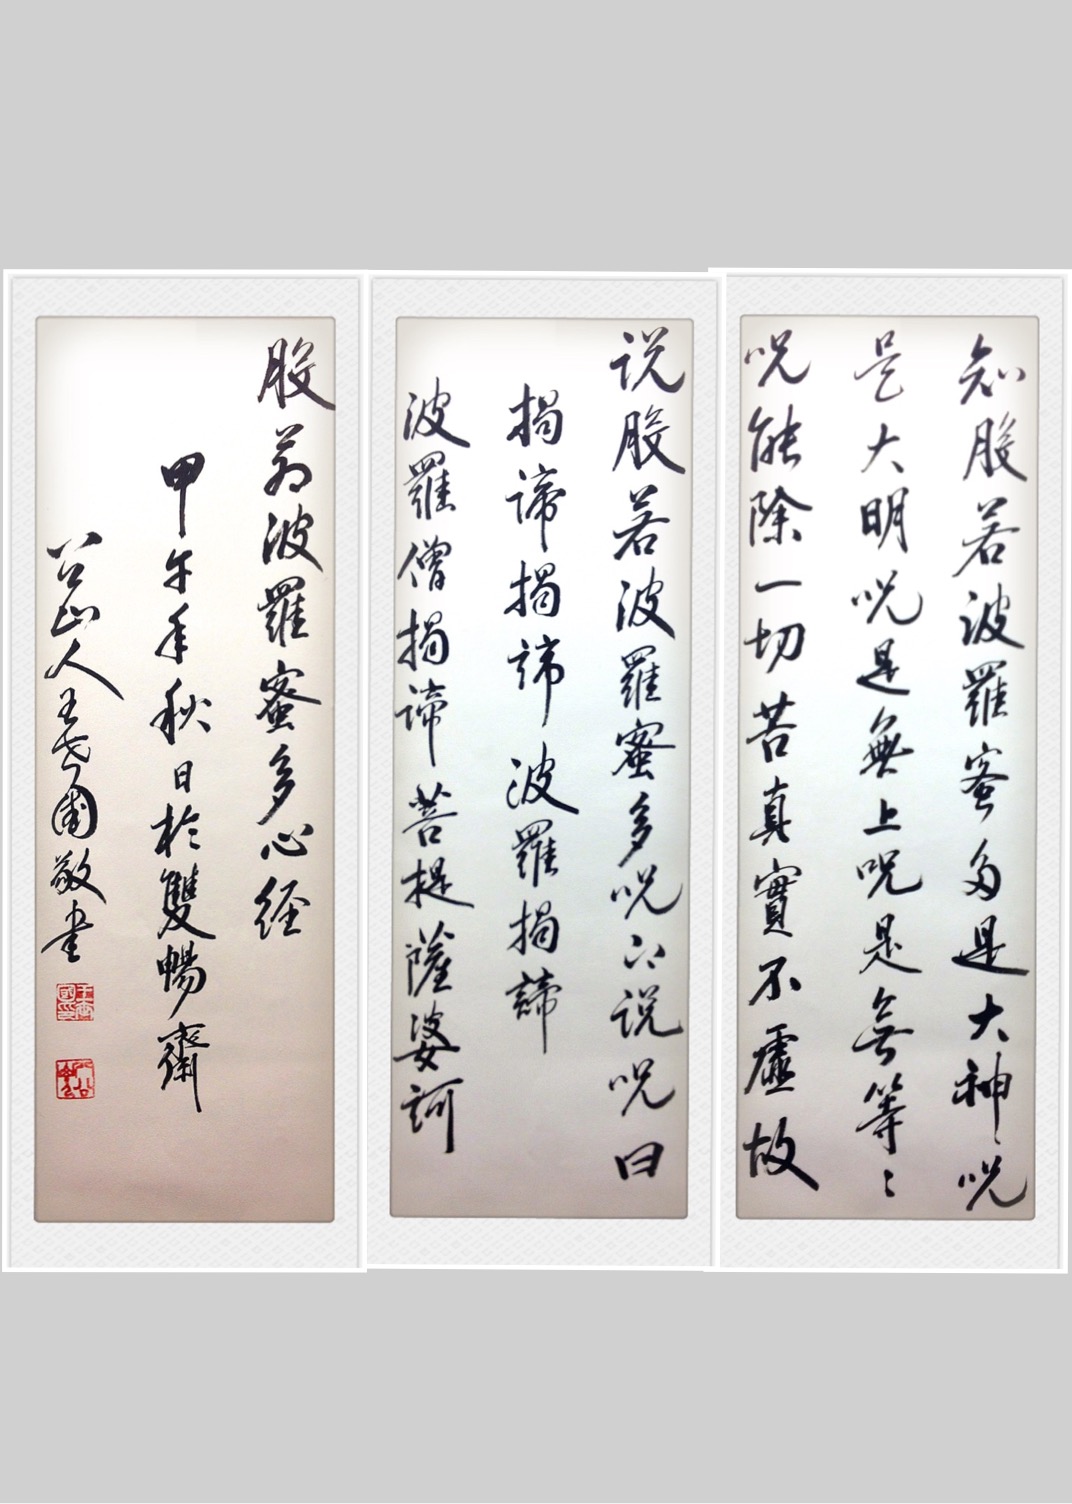 知般若波羅蜜多是大神咒
是大明咒是無上咒是無等〻
咒能除一切苦真實不虛故
说般若波羅蜜多咒即说咒曰
揭諦揭諦波羅揭諦
波羅僧揭諦菩提薩婆訶
般若波羅蜜多心经
甲午年秋日於雙暢齋
八公山人王國敬書